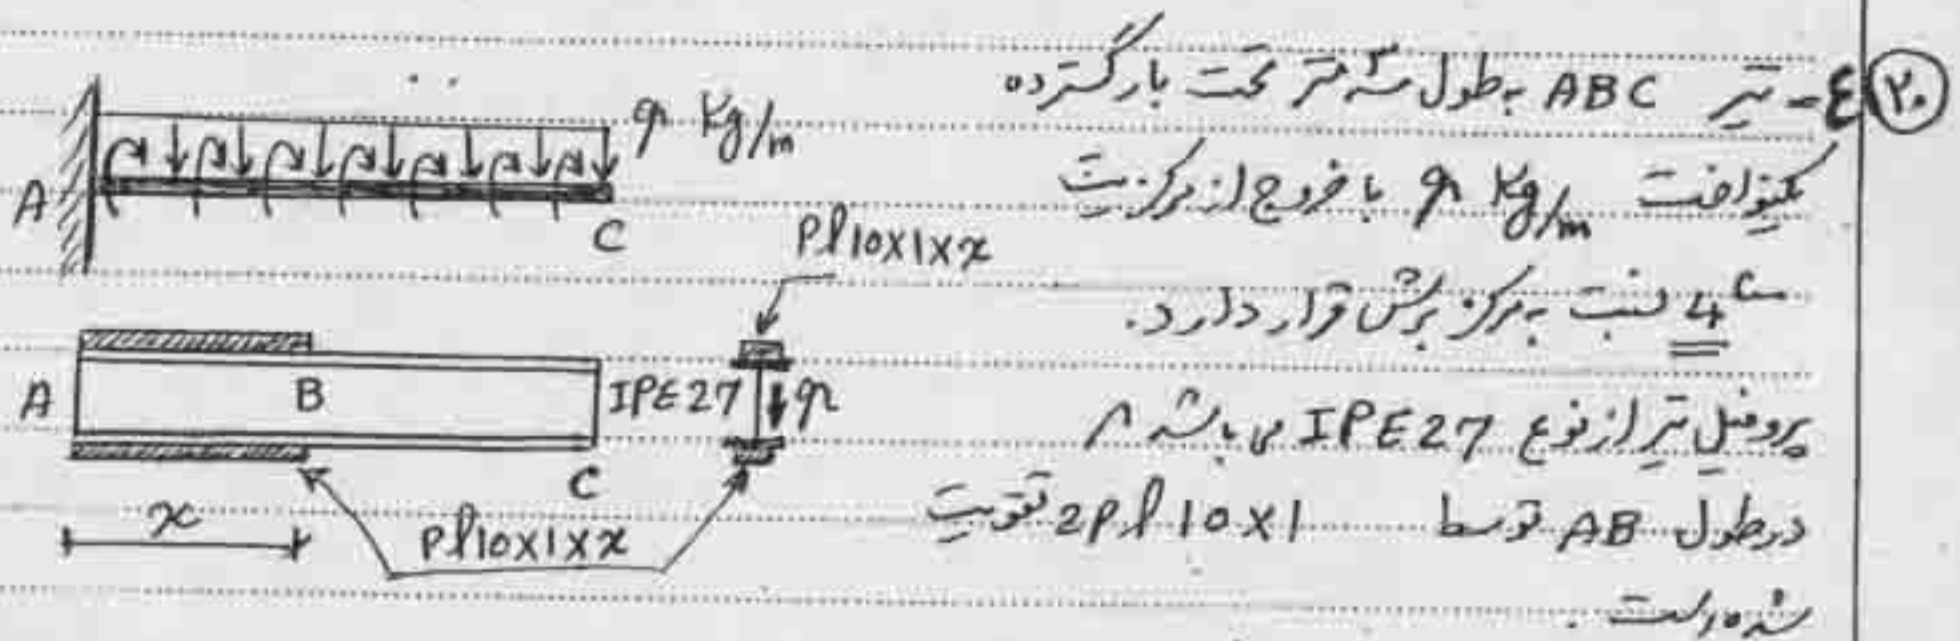 ۲۰
۴- تیر ABC بطول سه متر تحت بار گسترده
یکنواخت q kg/m با خروج از مرکزیت
4 cm نسبت به مرکز برش قرار دارد.
پروفیل تیر از نوع IPE27 می باشد و
در طول AB توسط 2Pl 10x1 تقویت
شده است.
q kg/m
A
C
Pl10x1xx
A
B
IPE27
q
C
x
Pl10x1xx